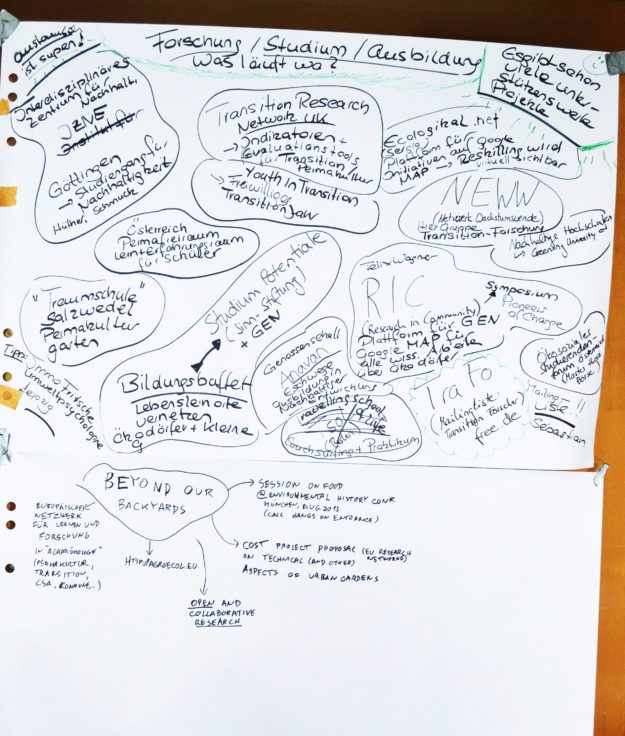 Forschung / Studium / Ausbildung
Was läuft wo?
Austausch
ist super!
Es gibt schon
viele unter-
stützenswerte
Projekte
Interdisziplinäres
Zentrum für
Nachhalt.
IZNE
Institut für
Göttingen
→ Studiengang für
Nachhaltigkeit
Transition Research
Network UK
→ Indikatoren +
Evaluationstools
für Transition
Permakultur
Youth in Transition
→ Freiwillige
Transition
Ecologikal.net
Sergio
Platform für google
Initiativen auf
MAP → Reskilling wird
virtuell sichtbar
NEWW
(Netzwerk Wachstumswende)
Hier Gruppe
Transition-Forschung
Nachhaltige Hochschulen
Greening University
Österreich
Permafreiraum
Lernerfahrungsraum
für Schüler
"Traumschule"
Salzwedel
Permakultur
garten
Tipp:
Immo Fritsche
Umweltpsychologie
Leipzig
Studium Potentiale
(Sinn-stiftung)
+ GEN
Bildungsbuffet
Lebenslernorte
vernetzen
Ökodörfer + kleine
Felix Wagner
RIC
(Research in Community)
Platform für GEN
Google MAP für
alle wiss. Arbeiten
über Ökodörfer
Symposium
Pioneers
of Change
Genossenschaft
travelling school
of life
Couchsurfing + Praktikum
TraFo
(Mailingliste:
Transition Forscher)
free.de
Ökosoziales
Studierenden-
forum
Mailing-
Liste!!
Sebastian
BEYOND OUR
BACKYARDS
EUROPÄISCHES
NETZWERK
FÜR LERNEN UND
FORSCHUNG
IN "AGRARÖKOLOGIE"
(PERMAKULTUR,
TRANSITION,
CSA, KOMMUNE,..)
→ SESSION ON FOOD
@ ENVIRONMENTAL HISTORY CONF.
MÜNCHEN, AUG 2013
(CALL HANGS ON ENTRANCE)
→ COST PROJECT PROPOSAL (EU RESEARCH
NETWORKS)
ON TECHNICAL (AND OTHER)
ASPECTS OF URBAN GARDENS
HTTP://AGROECOL.EU
OPEN AND
COLLABORATIVE
RESEARCH